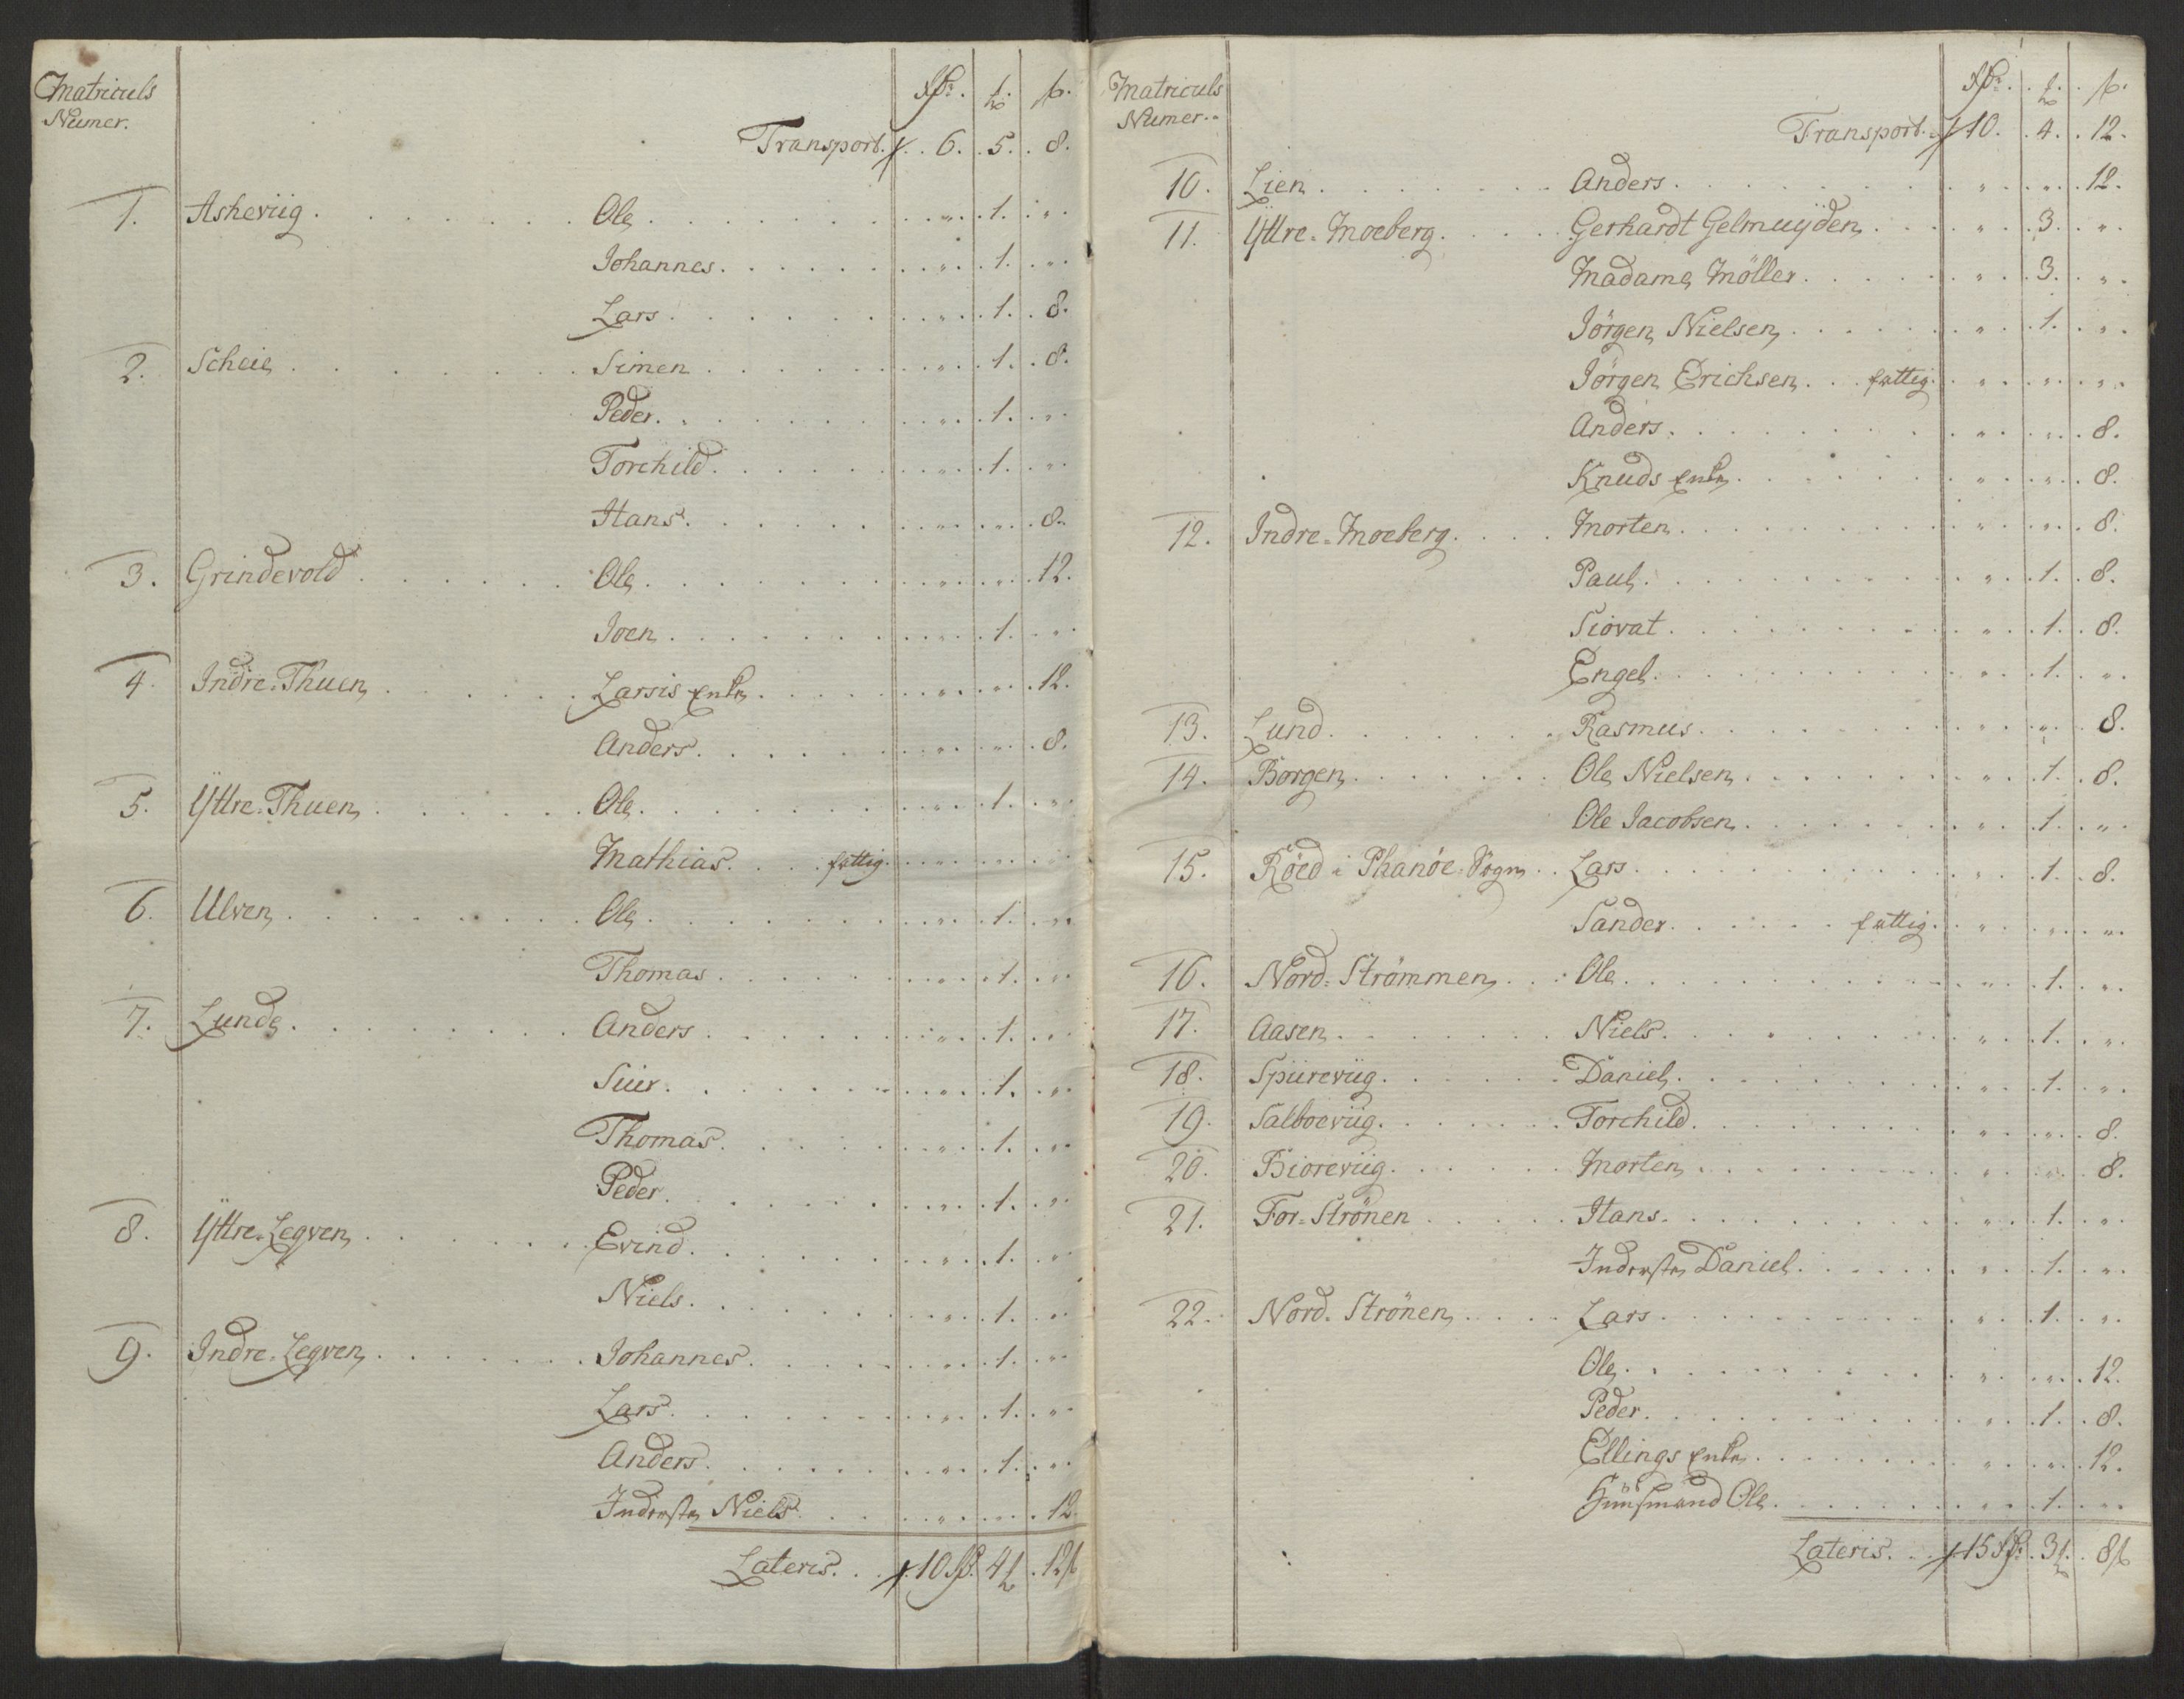 Matriculs Numer. Rdr. ʒ. ß.
Transport. 6. 5. 8.
1. Askeviig . . . Ole . . . " . 1. "
Johannes . . . " . 1. "
Lars . . . " . 1. 8.
2. Scheie . . . Simen . . . " . 1. 8.
Peder . . . " . 1. "
Torchild . . . " . 1. "
Hans . . . " . " . 8.
3. Grindevold . . . Ole . . . " . " . 12.
Joen . . . " . 1. "
4. Indre-Thuen . . . Larsis Enke . . . " . " . 12.
Anders . . . " . " . 8.
5. Yttre-Thuen . . . Ole . . . " . 1. "
Mathias . . . fattig . " . " . "
6. Ulven . . . Ole . . . " . 1. "
Thomas . . . " . 1. "
7. Lunde . . . Anders . . . " . 1. "
Siur . . . " . 1. "
Thomas . . . " . 1. "
Peder . . . " . 1. "
8. Yttre-Legven . . . Evind . . . " . 1. "
Niels . . . " . 1. "
9. Indre-Legven . . . Johannes . . . " . 1. "
Lars . . . " . 1. "
Anders . . . " . 1. "
Inderste Niels . . . " . " . 12.
Lateris . . . 10 Rdr. 4 ʒ. 12 ß
Matriculs Numer. Rdr. ʒ. ß.
Transport. 10. 4. 12.
10. Lien . . . Anders . . . " . " . 12.
11. Yttre-Moeberg . . . Gerhardt Gelmuÿden . . . " . 3. "
Madame Möller . . . " . 3. "
Jörgen Nielsen . . . " . 1. "
Jörgen Erichsen . . . fattig . " . " . "
Anders . . . " . " . 8.
Knuds Enke . . . " . " . 8.
12. Indre-Moeberg . . . Morten . . . " . " . 8.
Paul . . . " . 1. 8.
Siovat . . . " . 1. 8.
Engel . . . " . 1. "
13. Lund . . . Rasmus . . . " . " . 8.
14. Borgen . . . Ole Nielsen . . . " . 1. 8.
Ole Jacobsen . . . " . 1. "
15. Röed i Phanöe-Sogn . . Lars . . . " . 1. 8.
Sander . . . fattig . " . " . "
16. Nord-Strömmen . . . Ole . . . " . 1. "
17. Aasen . . . Niels . . . " . 1. "
18. Spüreviig . . . Daniel . . . " . 1. "
19. Salboeviig . . . Torchild . . . " . " . 8.
20. Bioreviig . . . Morten . . . " . " . 8.
21. For-Strönen . . . Hans . . . " . 1. "
Inderste Daniel . . . " . 1. "
22. Nord-Strönen . . . Lars . . . " . 1. "
Ole . . . " . " . 12.
Peder . . . " . 1. 8.
Ellings Enke . . . " . " . 12.
Huusmand Ole . . . " . 1. "
Lateris . . . 15 Rdr. 3 ʒ. 8 ß